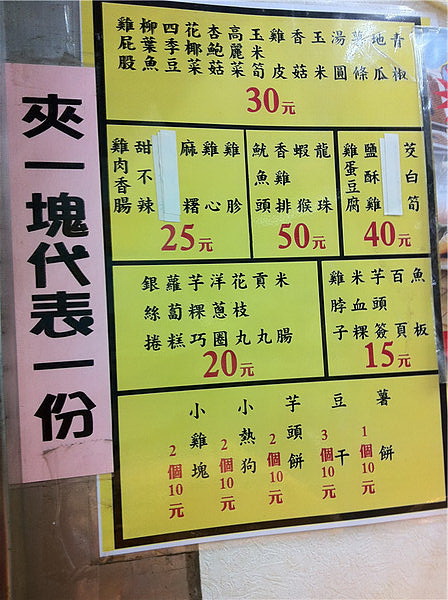 夾一塊代表一份
雞屁股
柳葉魚
四季豆
花椰菜
杏鮑菇
高麗菜
玉米筍
雞皮
香菇
玉米
湯圓
薯條
地瓜
青椒
30元
雞肉香腸
甜不辣
麻糬
雞心
雞胗
25元
魷魚頭
香雞排
蝦猴
龍珠
50元
雞蛋豆腐
鹽酥雞
茭白筍
40元
銀絲捲
蘿蔔糕
芋粿巧
洋蔥圈
花枝丸
貢丸
米腸
20元
雞脖子
米血粿
芋頭簽
百頁
魚板
15元
小雞塊
2個10元
小熱狗
2個10元
芋頭餅
2個10元
豆干
3個10元
薯餅
1個10元